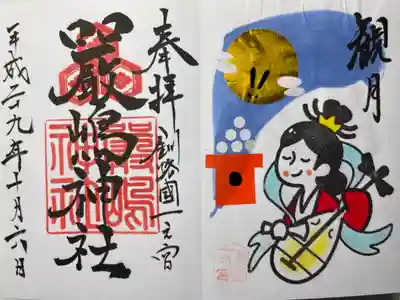 観月
奉拝
釧路國一之宮
厳嶋神社
平成二十九年十月六日
嚴嶋神社